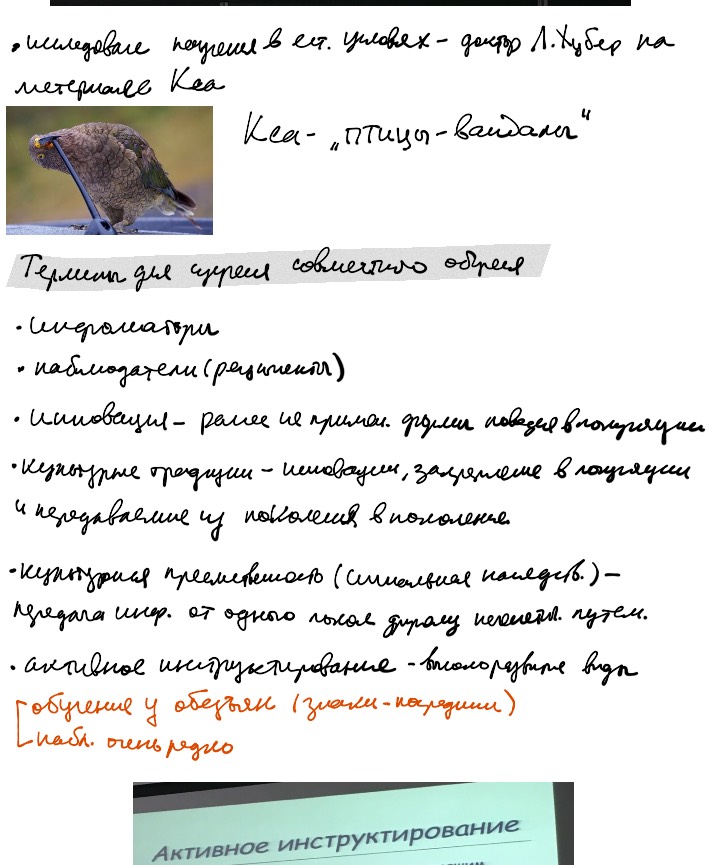 • исследован научения в ест. условях – доктор Л. Хубер на
материале Кеа
Кеа – „птицы–вандалы“
Термины для изучения совместного обучения
• информаторы
• наблюдатели (реципиенты)
• инновация – ранее не примен. формы поведения в популяции
• культурные традиции – инновации, закрепление в популяции
и передаваемые из поколения в поколение.
• культурная преемственность (сигнальная наследств.) –
передача инф. от одного покол другому негенетич. путем.
• активное инструктирование – высокоразвитые виды
обучение у обезьян (знаки–посредники)
набл. очень редко
Активное инструктирование